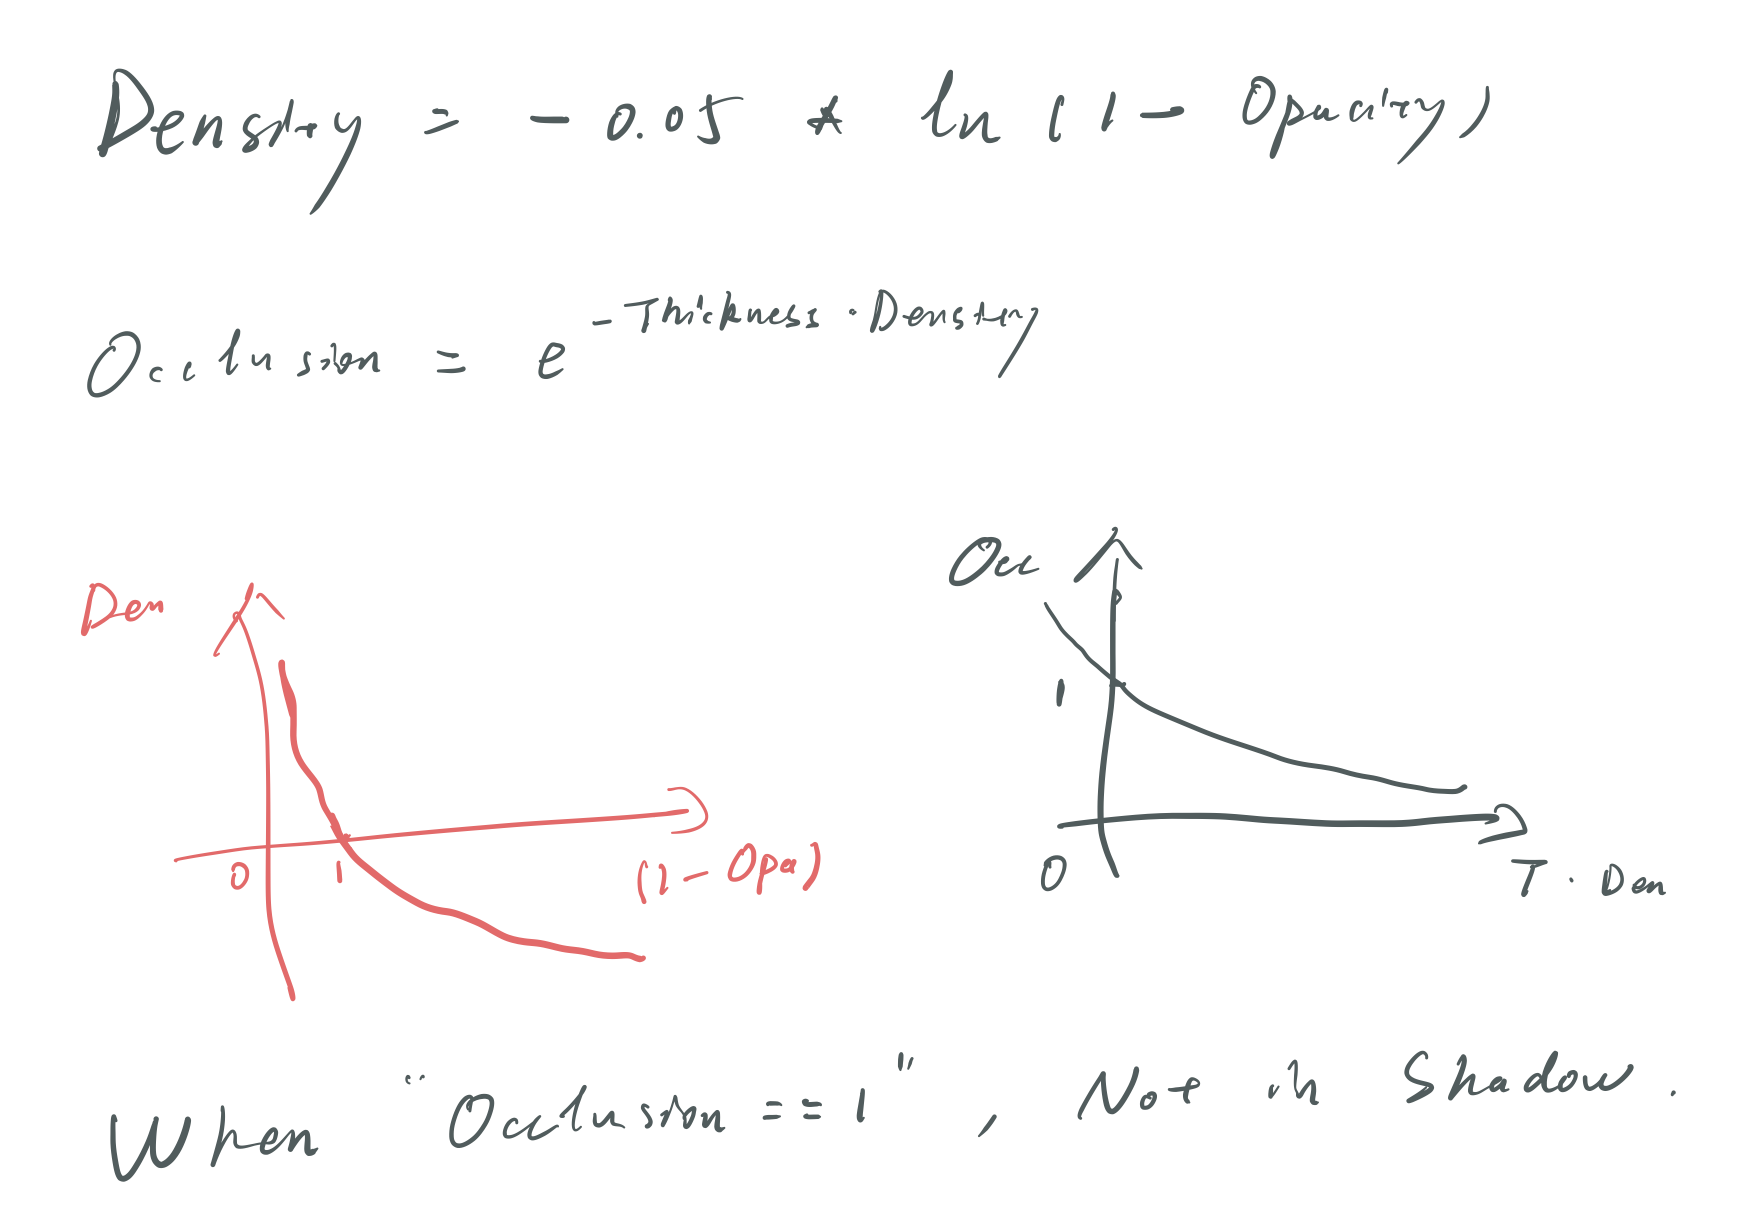 Density = - 0.05 * ln (1 - Opacity)
Occlusion = e^{-Thickness · Density}
Occ
Den
1
0 1 (1 - Opa)
0 T · Den
When "Occlusion == 1", Not in Shadow.